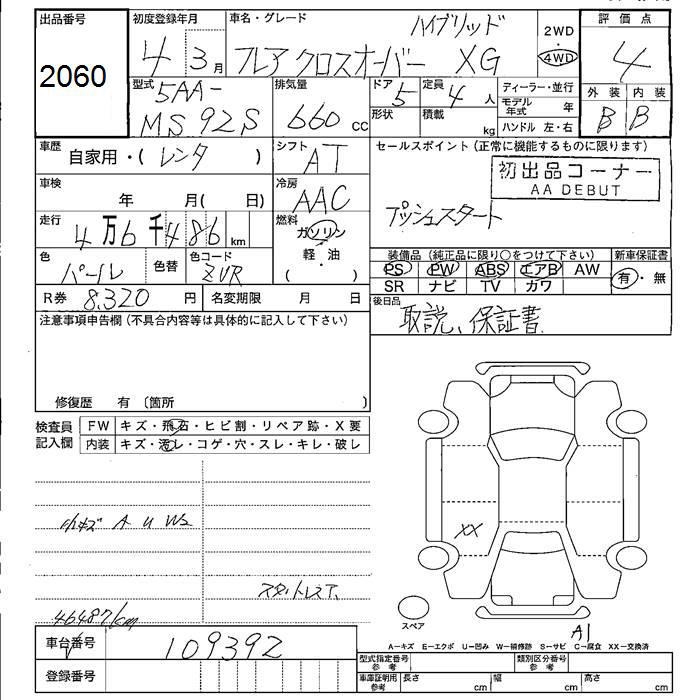 出品番号
2060
初度登録年月
4 3月
車名・グレード
ハイブリッド
フレア クロスオーバー XG
2WD
4WD
評価点
4
外装 内装
B B
型式
5AA-
MS92S
排気量
660 cc
ドア
5
定員
4 人
形状
積載
kg
ディーラー・並行
モデル年式 年
ハンドル 左・右
車歴
自家用・( レンタ )
シフト
AT
セールスポイント (正常に機能するものに限ります)
初出品コーナー
AA DEBUT
プッシュスタート
車検
年 月( 日)
冷房
AAC
走行
4万6千486 km
燃料
ガソリン
軽・油
( )
色
パール
色替
色コード
ZVR
装備品 (純正品に限り○をつけて下さい)
新車保証書
PS PW ABS エアB AW
SR ナビ TV カワ
有・無
R券 8,320 円
名変期限 月 日
後日品
取説、保証書
注意事項申告欄 (不具合内容等は具体的に記入して下さい)
修復歴 有 〔箇所 〕
検査員
記入欄
FW キズ・飛石・ヒビ割・リペア跡・X要
内装 キズ・汚レ・コゲ・穴・スレ・キレ・破レ
小キズ A U W2
スタットレスT
46487km
XX
スペア
A1
A-キズ E-エクボ U-凹み W-補修跡 S-サビ C-腐食 XX-交換済
車台番号
109392
登録番号
型式指定番号
参考
類別区分番号
参考
車庫証明用
参考
長さ cm
幅 cm
高さ cm